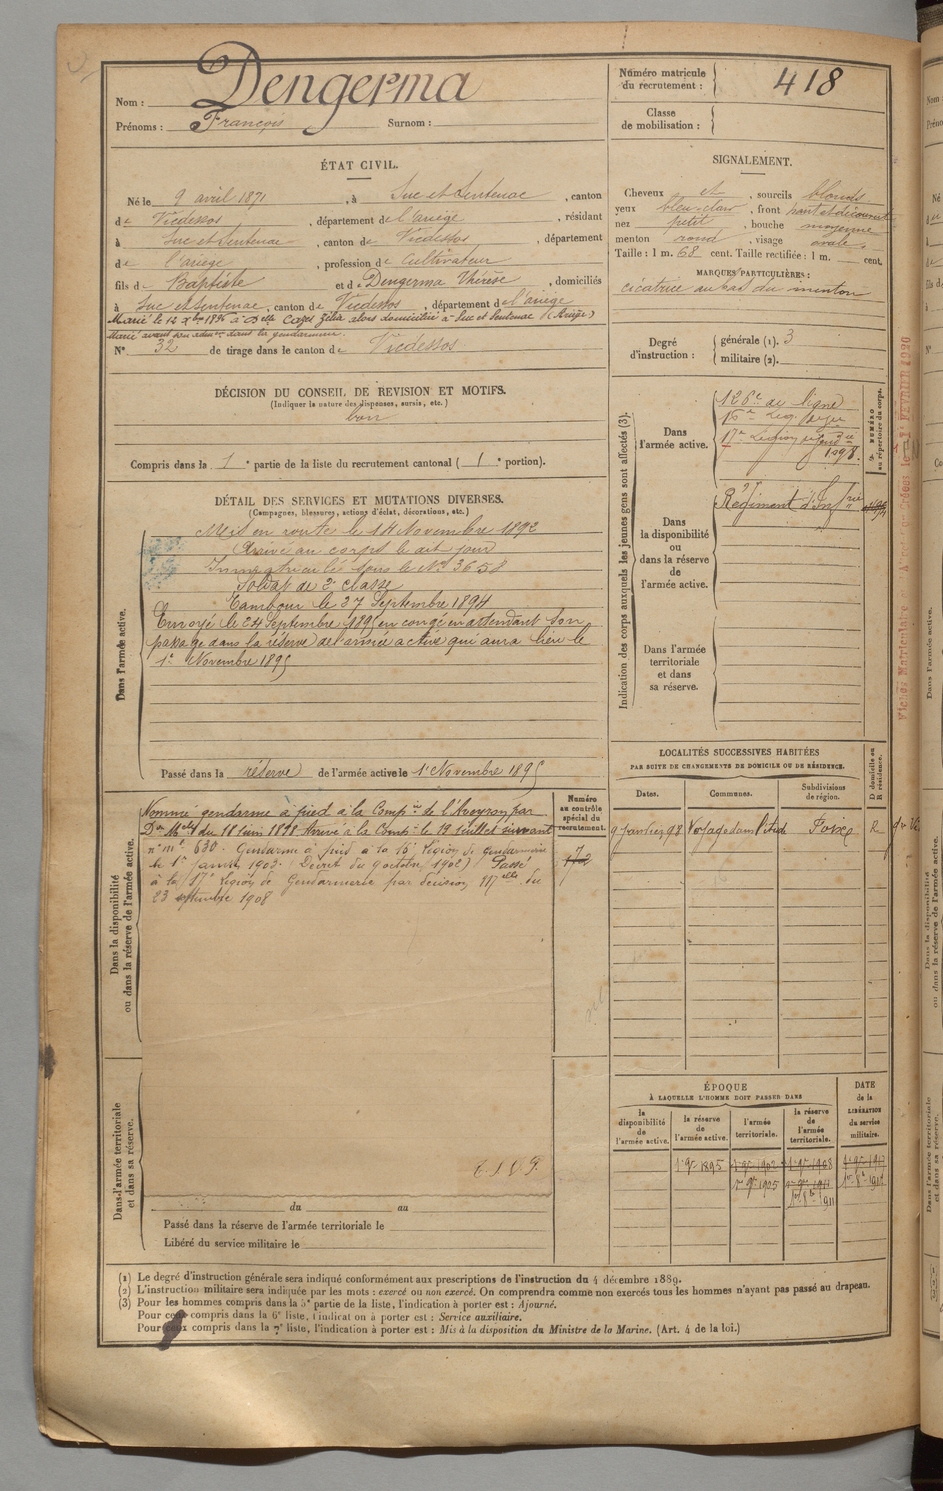 Nom : Dengerma
Prénoms : François Surnom :
Numéro matricule du recrutement : 418
Classe de mobilisation :
ÉTAT CIVIL.
Né le 9 avril 1871, à Suc et Sentenac, canton
de Vicdessos, département de l'ariège, résidant
à Suc et Sentenac, canton de Vicdessos, département
de l'ariège, profession de Cultivateur
fils de Baptiste et de Dengerma Thérèse, domiciliés
à Suc et Sentenac, canton de Vicdessos, département de l'ariège
Marié le 12 Xbre 1896 à Delle Cazes Zélia alors domiciliée à Suc et Sentenac (Ariège)
Marié avant son admon dans la gendarmerie.
N° 32 de tirage dans le canton de Vicdessos
DÉCISION DU CONSEIL DE REVISION ET MOTIFS.
(Indiquer la nature des dispenses, sursis, etc.)
bon
Compris dans la 1e partie de la liste du recrutement cantonal ( 1e portion).
DÉTAIL DES SERVICES ET MUTATIONS DIVERSES.
(Campagnes, blessures, actions d'éclat, décorations, etc.)
Dans l'armée active.
Mis en route le 14 Novembre 1892
Arrivé au corps le dit jour
Immatriculé sous le N° 3658
Soldat de 2e classe
Tambour le 27 Septembre 1894
Envoyé le 24 Septembre 1895 en congé en attendant son
passage dans la réserve de l'armée active qui aura lieu le
1er Novembre 1895
Passé dans la réserve de l'armée active le 1er Novembre 1895
Dans la disponibilité ou dans la réserve de l'armée active.
Nommé gendarme à pied à la Compie de l'Aveyron par
Don Mlle du 18 Juin 1898 Arrivé à la Compie le 19 Juillet suivant
n° mle 630. Gendarme à pied à la 16e Légion de gendarmerie
le 1er janvier 1903. (Décret du 9 octobre 1902) Passé
à la 17e Légion de Gendarmerie par décision Mlle du
23 septembre 1908
Numéro au contrôle spécial du recrutement.
Dans l'armée territoriale et dans sa réserve.
du au
Passé dans la réserve de l'armée territoriale le
Libéré du service militaire le
SIGNALEMENT.
Cheveux et, sourcils blonds
yeux bleu clair, front haut et découvert
nez petit, bouche moyenne
menton rond, visage ovale
Taille : 1 m. 68 cent. Taille rectifiée : 1 m. cent.
MARQUES PARTICULIÈRES :
cicatrice au bas du menton
Degré d'instruction : générale (1). 3
militaire (2).
Indication des corps auxquels les jeunes gens sont affectés (3).
NUMÉRO au répertoire du corps.
Dans l'armée active.
126e de ligne
17e Légion de gendie
1898.
Dans la disponibilité ou dans la réserve de l'armée active.
Régiment d'Infrie
Dans l'armée territoriale et dans sa réserve.
LOCALITÉS SUCCESSIVES HABITÉES
PAR SUITE DE CHANGEMENTS DE DOMICILE OU DE RÉSIDENCE.
Dates. Communes. Subdivisions de région. D domicile ou R résidence.
9 Janvier 98 Foix R
ÉPOQUE
À LAQUELLE L'HOMME DOIT PASSER DANS
la disponibilité de l'armée active.
la réserve de l'armée active.
l'armée territoriale.
la réserve de l'armée territoriale.
DATE de la LIBÉRATION du service militaire.
1er 9bre 1895 1er 9bre 1902 1er 9bre 1908
1er 9bre 1905 1er 9bre 1911
(1) Le degré d'instruction générale sera indiqué conformément aux prescriptions de l'instruction du 4 décembre 1889.
(2) L'instruction militaire sera indiquée par les mots : exercé ou non exercé. On comprendra comme non exercés tous les hommes n'ayant pas passé au drapeau.
(3) Pour les hommes compris dans la 5e partie de la liste, l'indication à porter est : Ajourné.
Pour ceux compris dans la 6e liste, l'indication à porter est : Service auxiliaire.
Pour ceux compris dans la 7e liste, l'indication à porter est : Mis à la disposition du Ministre de la Marine. (Art. 4 de la loi.)